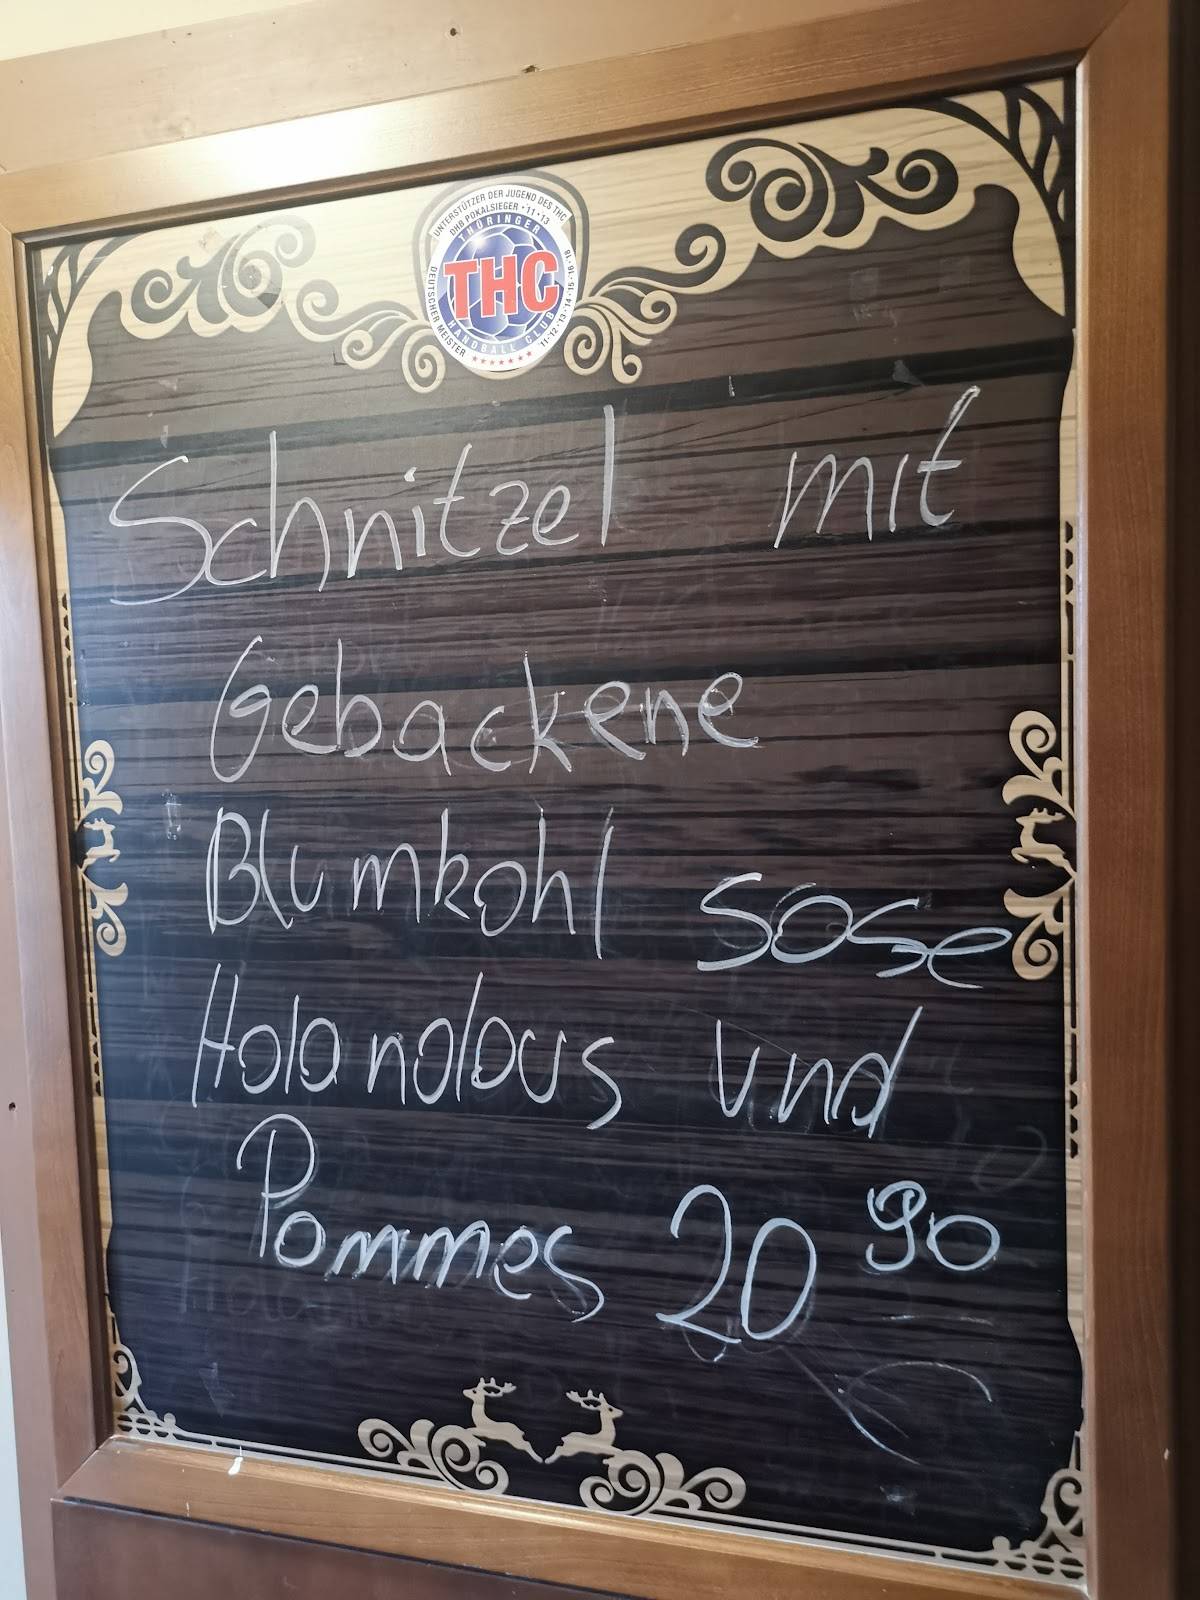 UNTERSTÜTZER DER JUGEND DES THC
DHB POKALSIEGER • '11 • '13
THÜRINGER
THC
HANDBALL CLUB
DEUTSCHER MEISTER
'11 • '12 • '13 • '14 • '15 • '16 • '18
Schnitzel mit
Gebackene
Blumkohl sose
Holandous und
Pommes 20 90